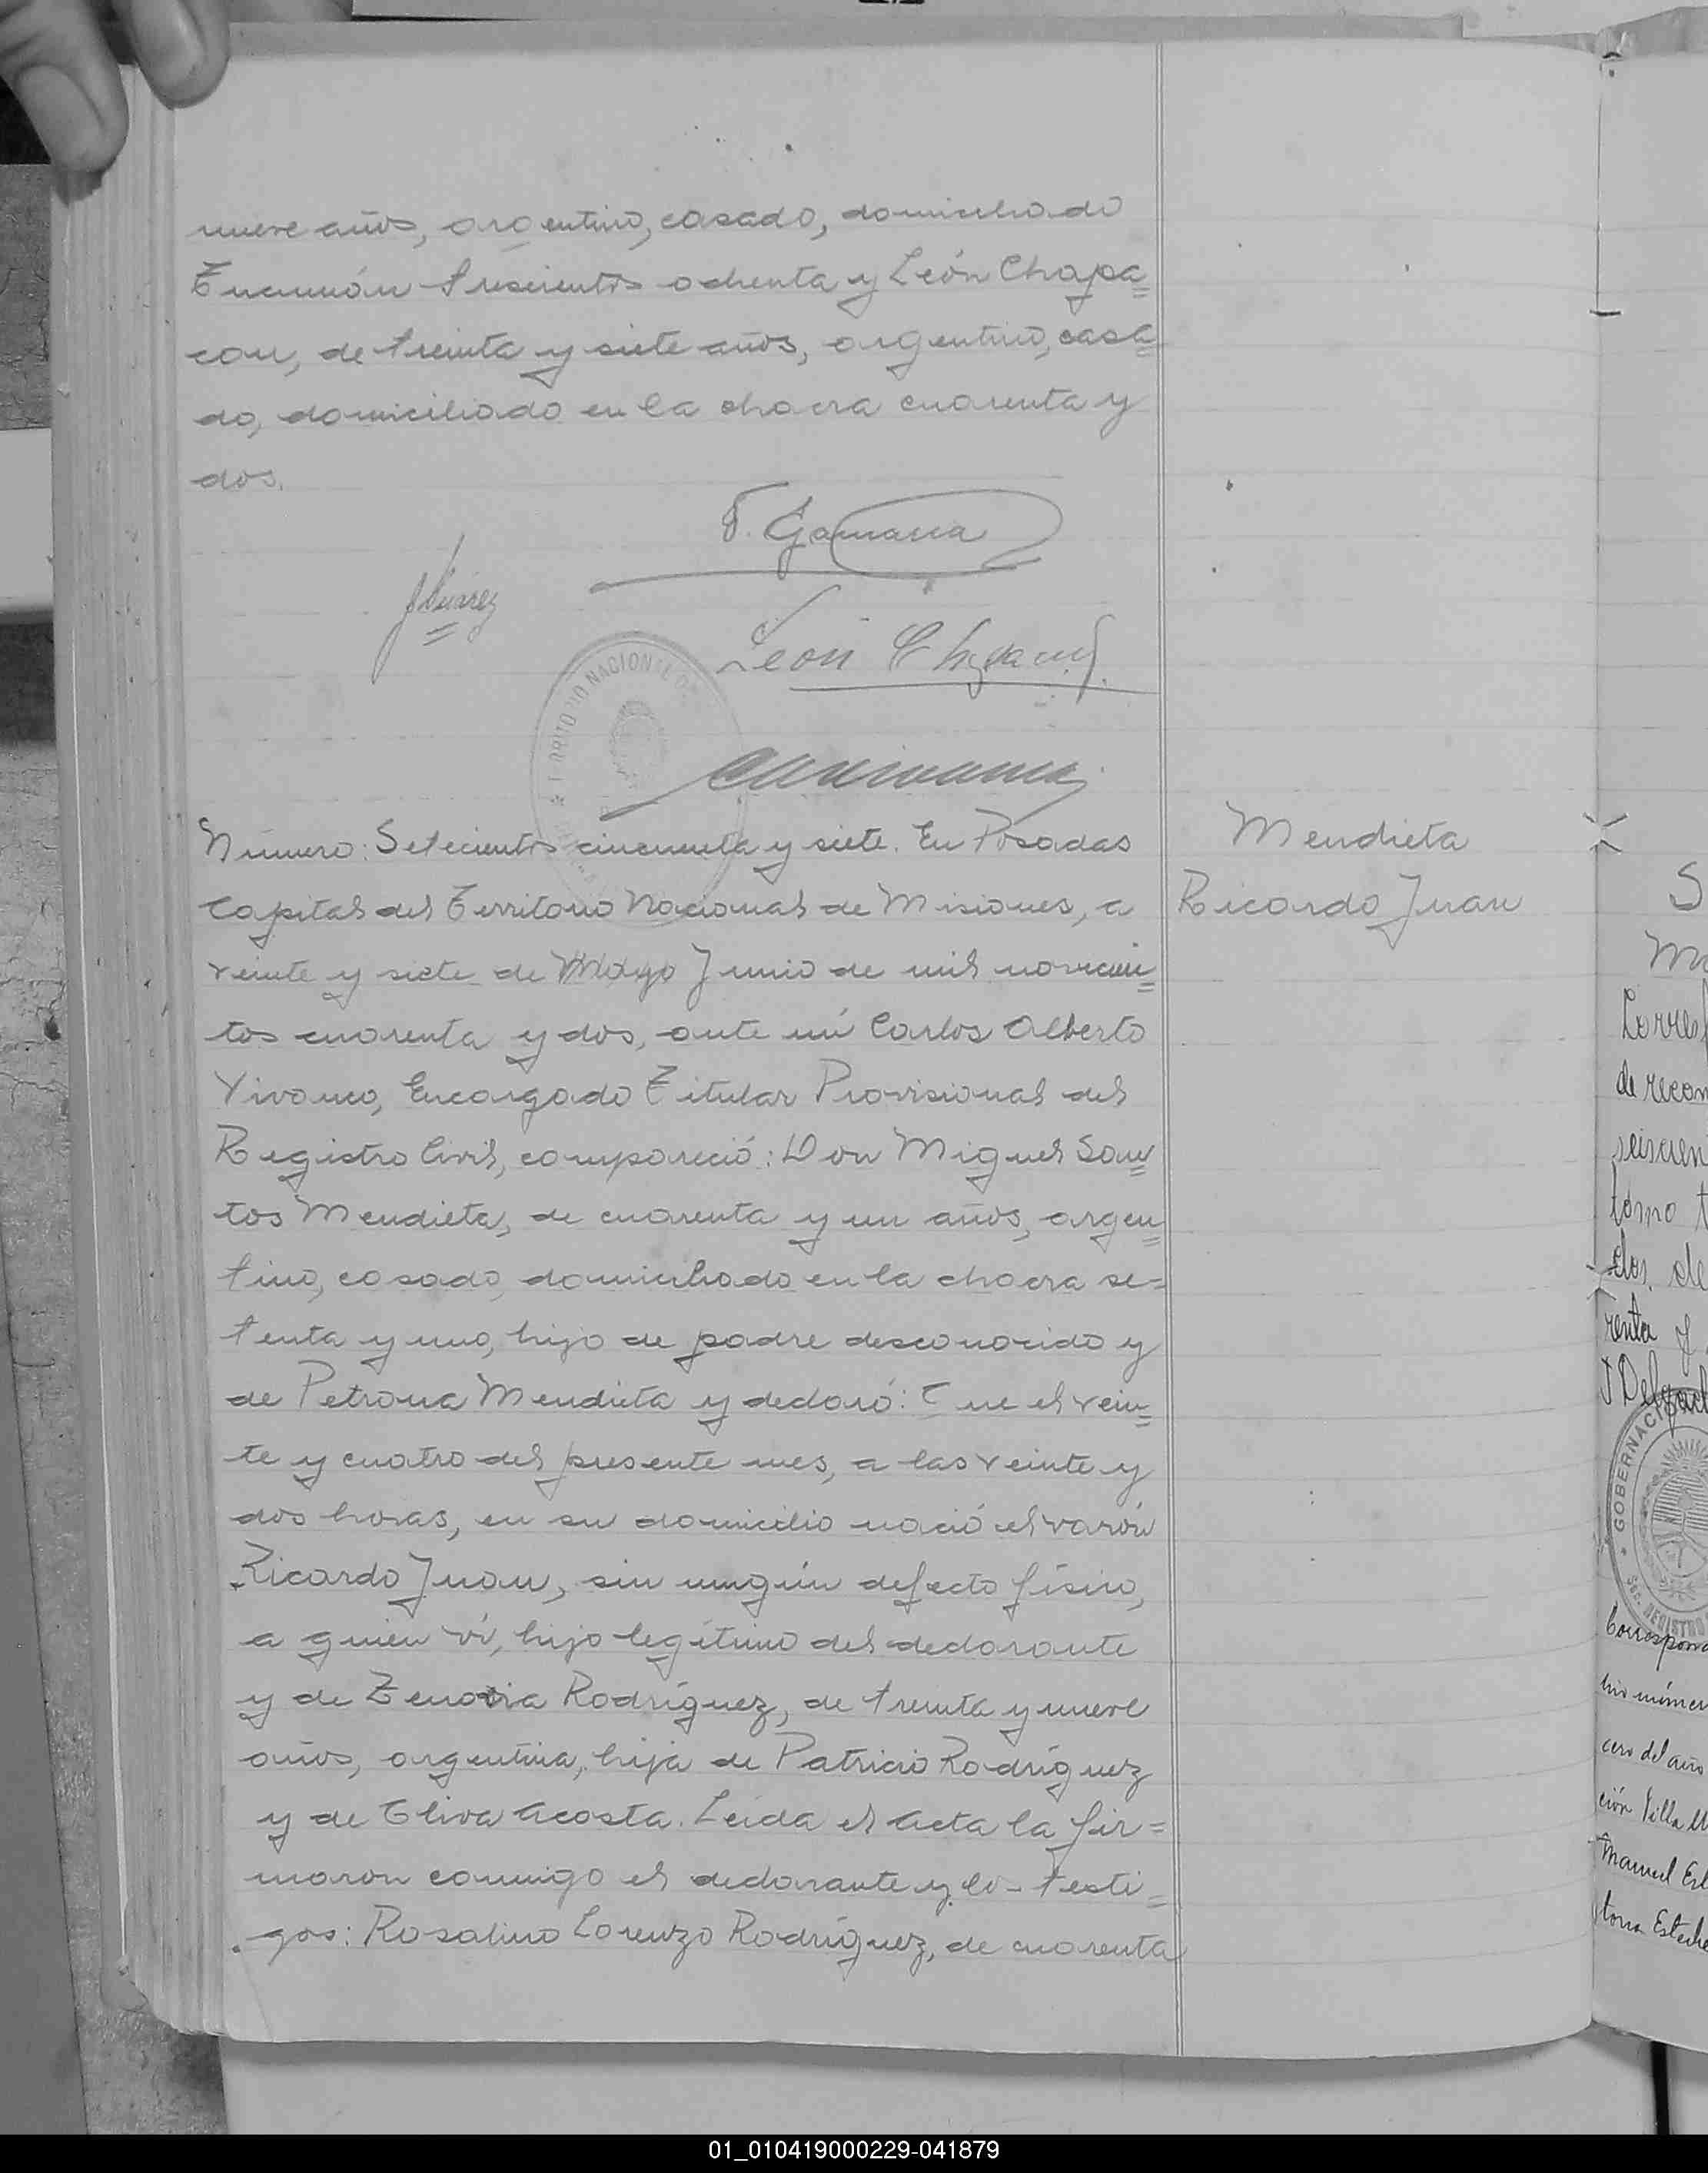 nueve años, argentino, casado, domiciliado
Tucumán trescientos ochenta y León Chapa=
cou, de treinta y siete años, argentino, casa=
do, domiciliado en la chacra cuarenta y
dos.
F. Gamarra
JSuárez
León
TERRITORIO NACIONAL DE
Número: Setecientos cincuenta y siete. En Posadas
Capital del Territorio Nacional de Misiones, a
veinte y siete de Mayo Junio de mil novecien=
tos cuarenta y dos, ante mí Carlos Alberto
Vivanco, Encargado Titular Provisional del
Registro Civil, compareció: Don Miguel San=
tos Mendieta, de cuarenta y un años, argen=
tino, casado, domiciliado en la chacra se=
tenta y uno, hijo de padre desconocido y
de Petrona Mendieta y declaró: Que el vein=
te y cuatro del presente mes, a las veinte y
dos horas, en su domicilio nació el varón
Ricardo Juan, sin ningún defecto físico,
a quien ví, hijo legítimo del declarante
y de Zenovia Rodríguez, de treinta y nueve
años, argentina, hija de Patricio Rodríguez
y de Oliva Acosta. Leída el Acta la fir=
maron conmigo el declarante y los testi=
gos: Rosalino Lorenzo Rodríguez, de cuarenta
Mendieta
Ricardo Juan
S
Torres
de recon
seiscien
tomo t
dos, de
renta y
J Delgad
GOBERNACI
SEC. REGISTRO
Correspond
cero del año
ción Villa
Manuel Est
toria Esteche
01_010419000229-041879